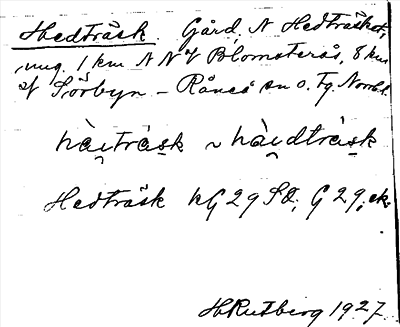 Hedträsk. Gård, N Hedträsket,
ung. 1 km NNV Blomsterås, 8 km
af Sörbyn – Råneå sn o. tg. Norrb.
hèi̯tràsk ~ hèi̯dtràsk
Hedträsk hG 29 SO; G 29, ek.
HRutberg 1927